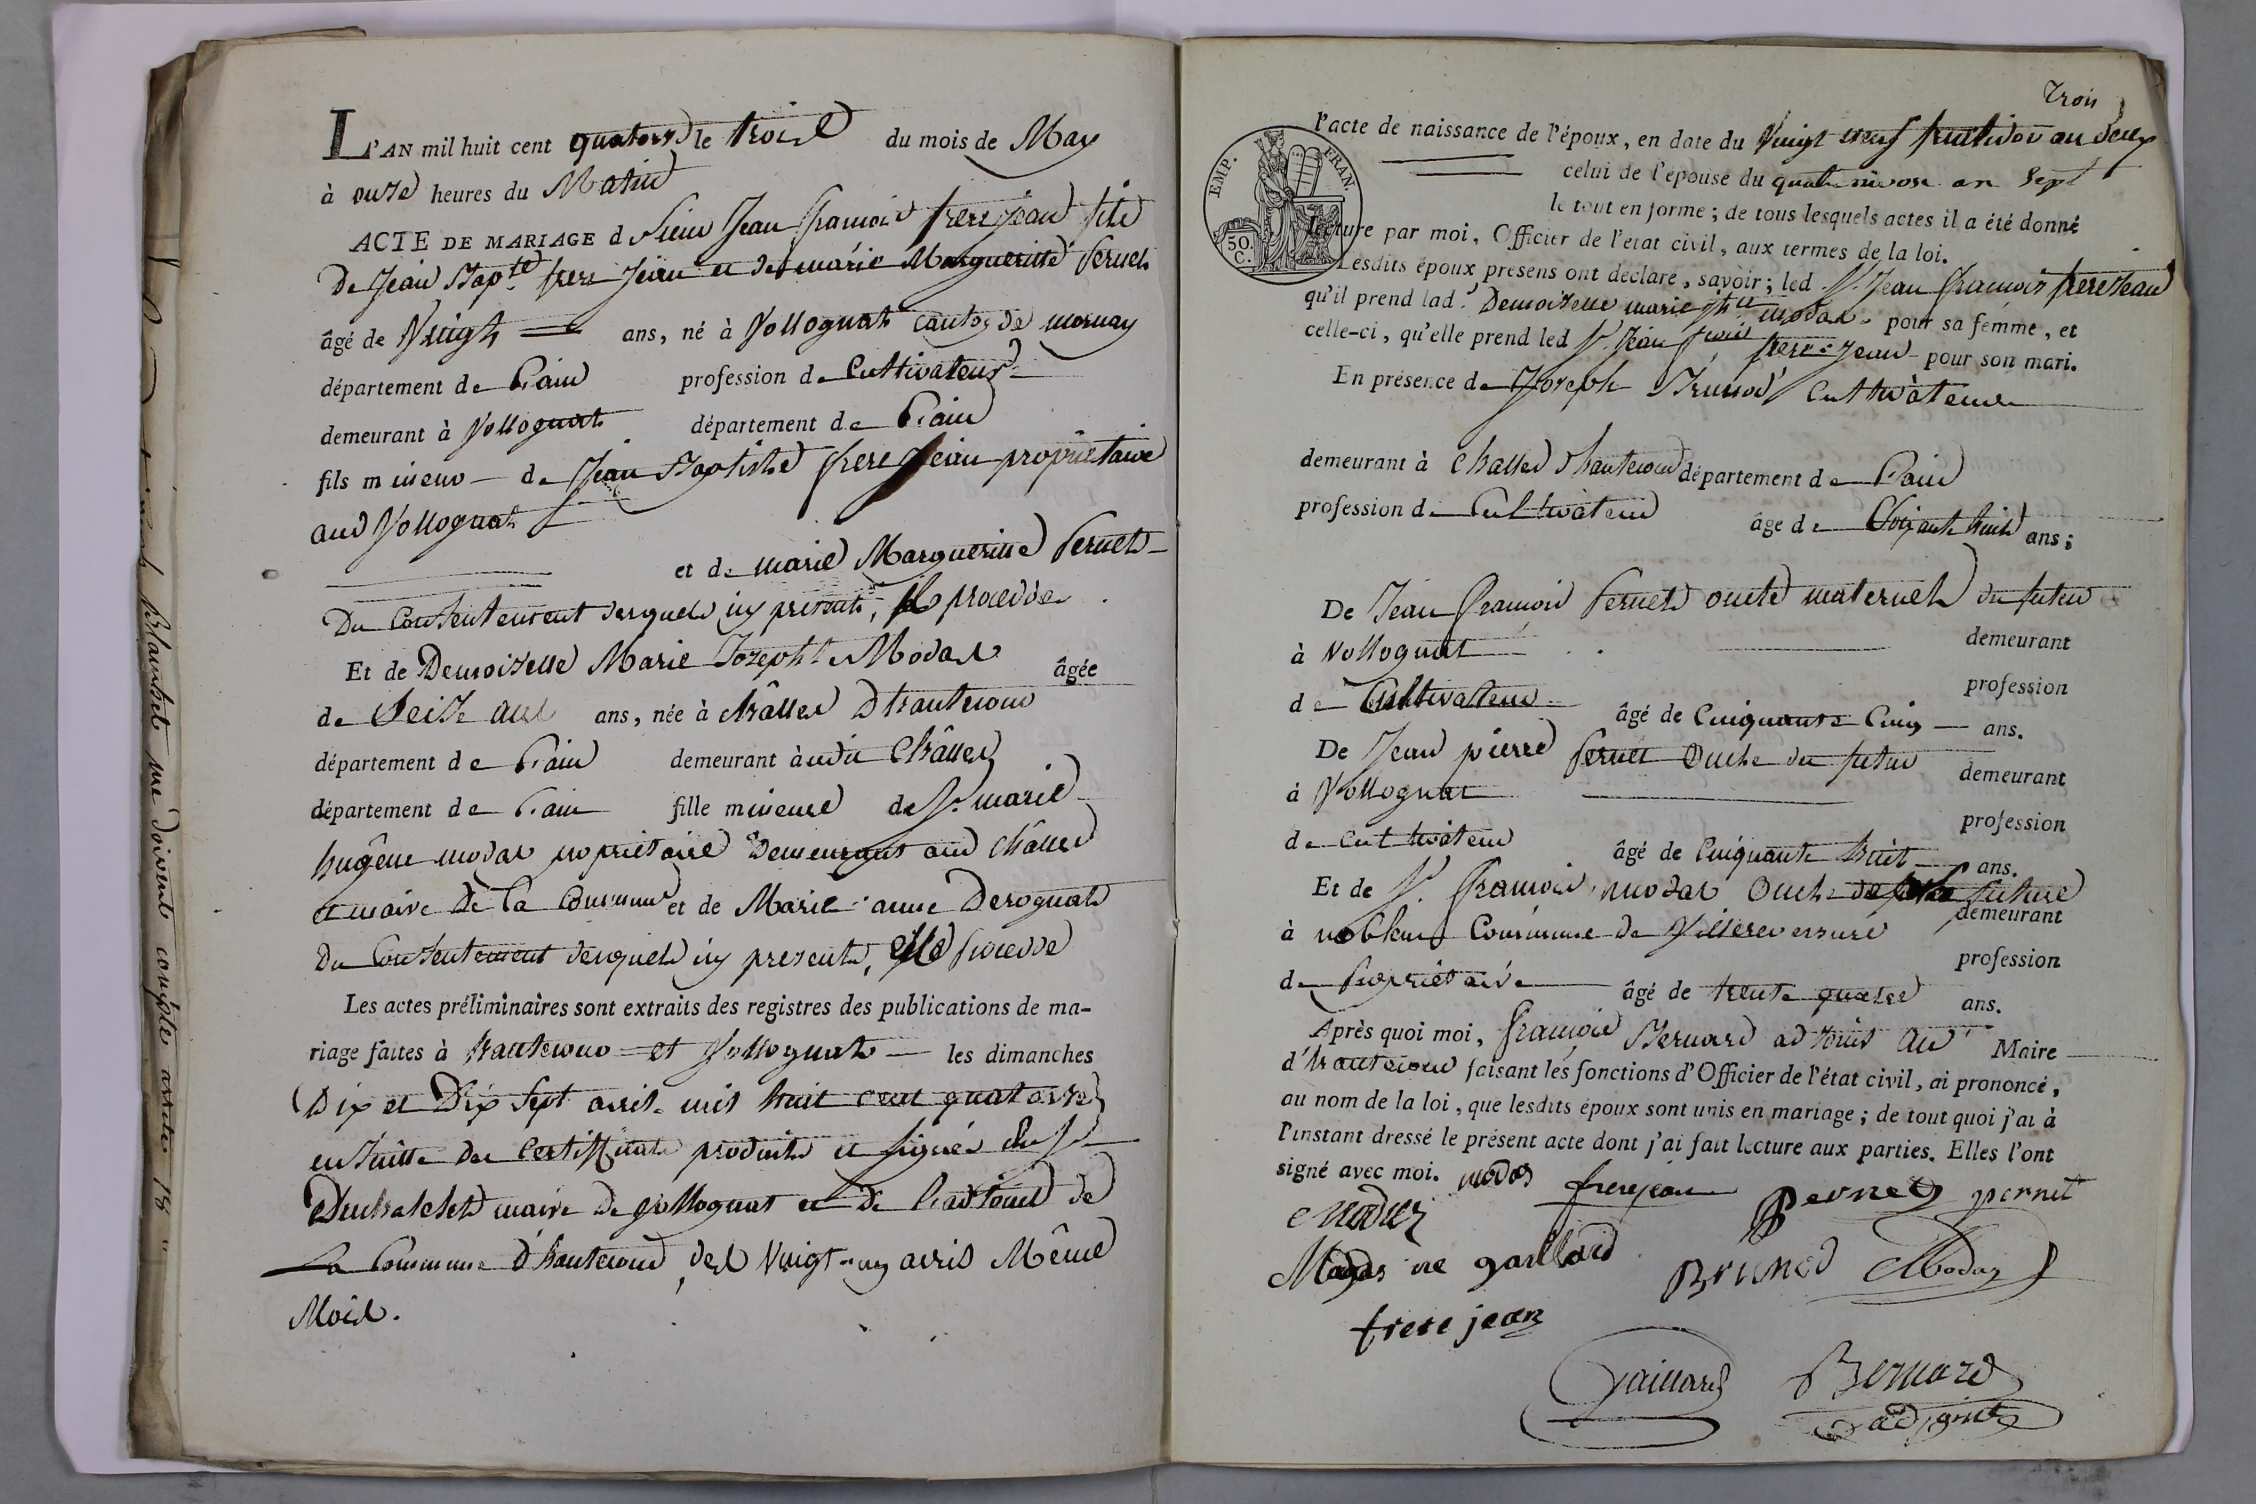 L'AN mil huit cent quatorze le trois du mois de May
à onze heures du Matin
ACTE DE MARIAGE d Sieur Jean françois frere jean fils
De Jean Bapte frere Jean et de marie Margueritte Pernet
âgé de Vingt ans, né à Vollognat canton de mornay
département de L'ain profession de Cultivateur
demeurant à Vollognat département de L'ain
fils mineur de Jean Baptiste frere Jean propriétaire
aud Vollognat
et de marie Margueritte Pernet
Du Consentement desquels icy presents, il procedde
Et de Demoiselle Marie Josephte Modas âgée
de Seize ans ans, née à châlles Dhautecour
département de L'ain demeurant à udit Châlles
département de L'ain fille mineure de Sr marie
hugêne modas propriétaire Demeurant aud châlles
et maire de la Commune et de Marie anne Derognat
Du Consentement desquels icy presents, elle procedde
Les actes préliminaires sont extraits des registres des publications de ma-
riage faites à hautecour et Vollognat les dimanches
Dix et Dix Sept avril mil huit cent quatorze
ensuitte des Certifficats produits et signés du Sr
maire de Vollognat et de L'adjoint de
La Commune d'hautecour, des Vingt-un avril Même
Mois.
Trois
EMP. FRAN.
50. C.
l'acte de naissance de l'époux, en date du Vingt neuf fructidor an Deux
celui de l'épouse du quatre nivose an Sept
le tout en forme; de tous lesquels actes il a été donné
lecture par moi, Officier de l'état civil, aux termes de la loi.
Lesdits époux présens ont déclaré, savoir; led Sr Jean françois frere Jean
qu'il prend lad. Demoiselle marie jhte modas pour sa femme, et
celle-ci, qu'elle prend led Sr Jean frcois frere Jean pour son mari.
En présence de Joseph Brunod Cultivateur
demeurant à challes d'hautecour département de L'ain
profession de Cultivateur âge de Soixante huit ans;
De Jean françois Pernet oncle maternel du futur
demeurant
à Vollognat
profession
de Cultivateur âgé de Cinquante Cinq ans.
De Jean pierre Pernet Oncle du futur
demeurant
à Vollognat
profession
de Cultivateur âgé de Cinquante huit ans.
Et de Sr françois modas Oncle de la future
demeurant
à noblens Commune de Villereversure
profession
de Propriétaire âgé de trente quatre ans.
Après quoi moi, françois Bernard adjoint au Maire
d'hautecour faisant les fonctions d'Officier de l'état civil, ai prononcé,
au nom de la loi, que lesdits époux sont unis en mariage; de tout quoi j'ai à
l'instant dressé le présent acte dont j'ai fait lecture aux parties. Elles l'ont
signé avec moi. modas frerejean Pernet pernet
Modas née gaillard Brunod Modas
frere jean
Gaillard Bernard
adjoint